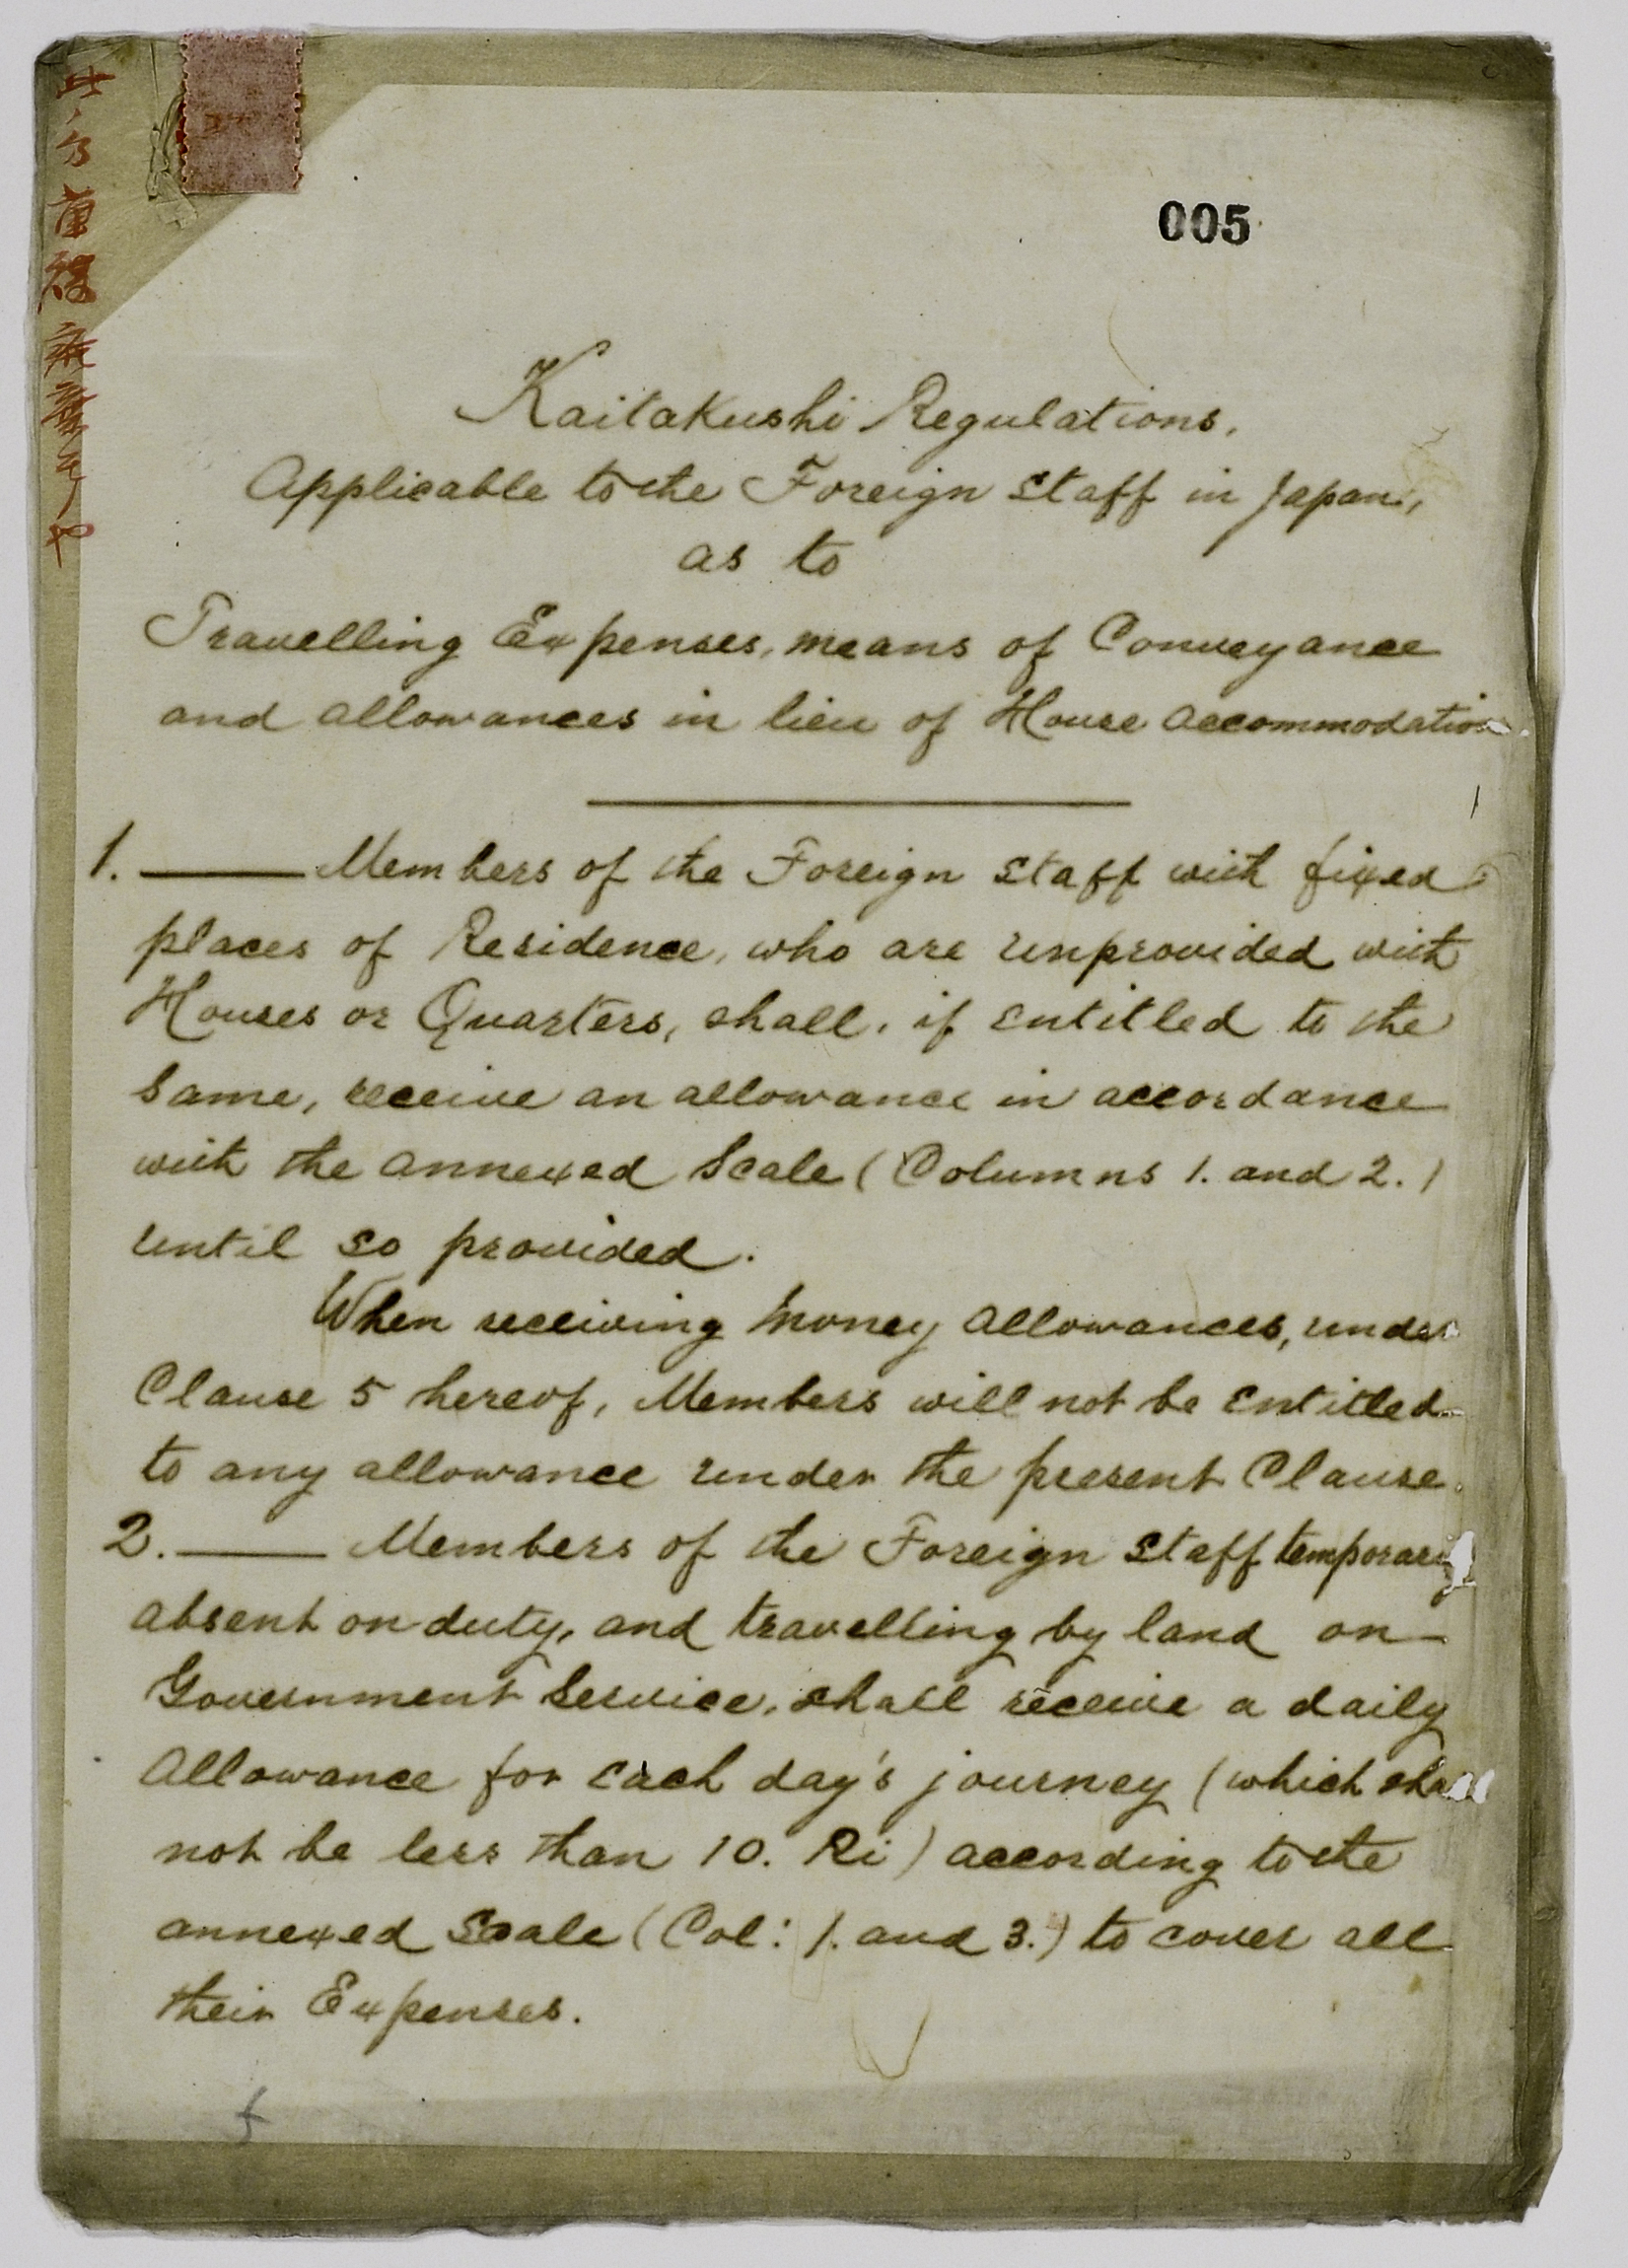 005
Kaitakushi Regulations,
Applicable to the Foreign Staff in Japan,
as to
Travelling Expenses, means of Conveyance
and allowances in lieu of House Accommodation
1. Members of the Foreign Staff with fixed
places of Residence, who are unprovided with
Houses or Quarters, shall, if entitled to the
Same, receive an allowance in accordance
with the annexed Scale (Columns 1. and 2.)
until so provided.
When receiving Money Allowances, under
Clause 5 hereof, Members will not be entitled
to any allowance under the present Clause.
2. Members of the Foreign Staff temporary
absent on duty, and travelling by land on
Government Service, shall receive a daily
Allowance for each day's journey (which shall
not be less than 10. Ri) according to the
annexed Scale (Col: 1. and 3.) to cover all
their Expenses.